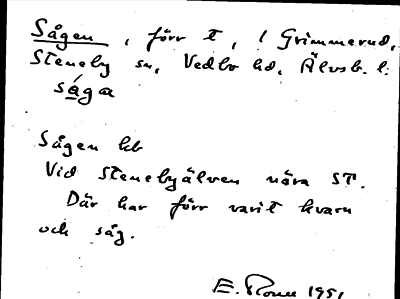 Sågen, förr t, i Grimmerud,
Steneby sn, Vedbo hd, Älvsb. l.
såga
Sågen kb
Vid Stenebyälven nära ST.
Där har förr varit kvarn
och såg.
E. 1951